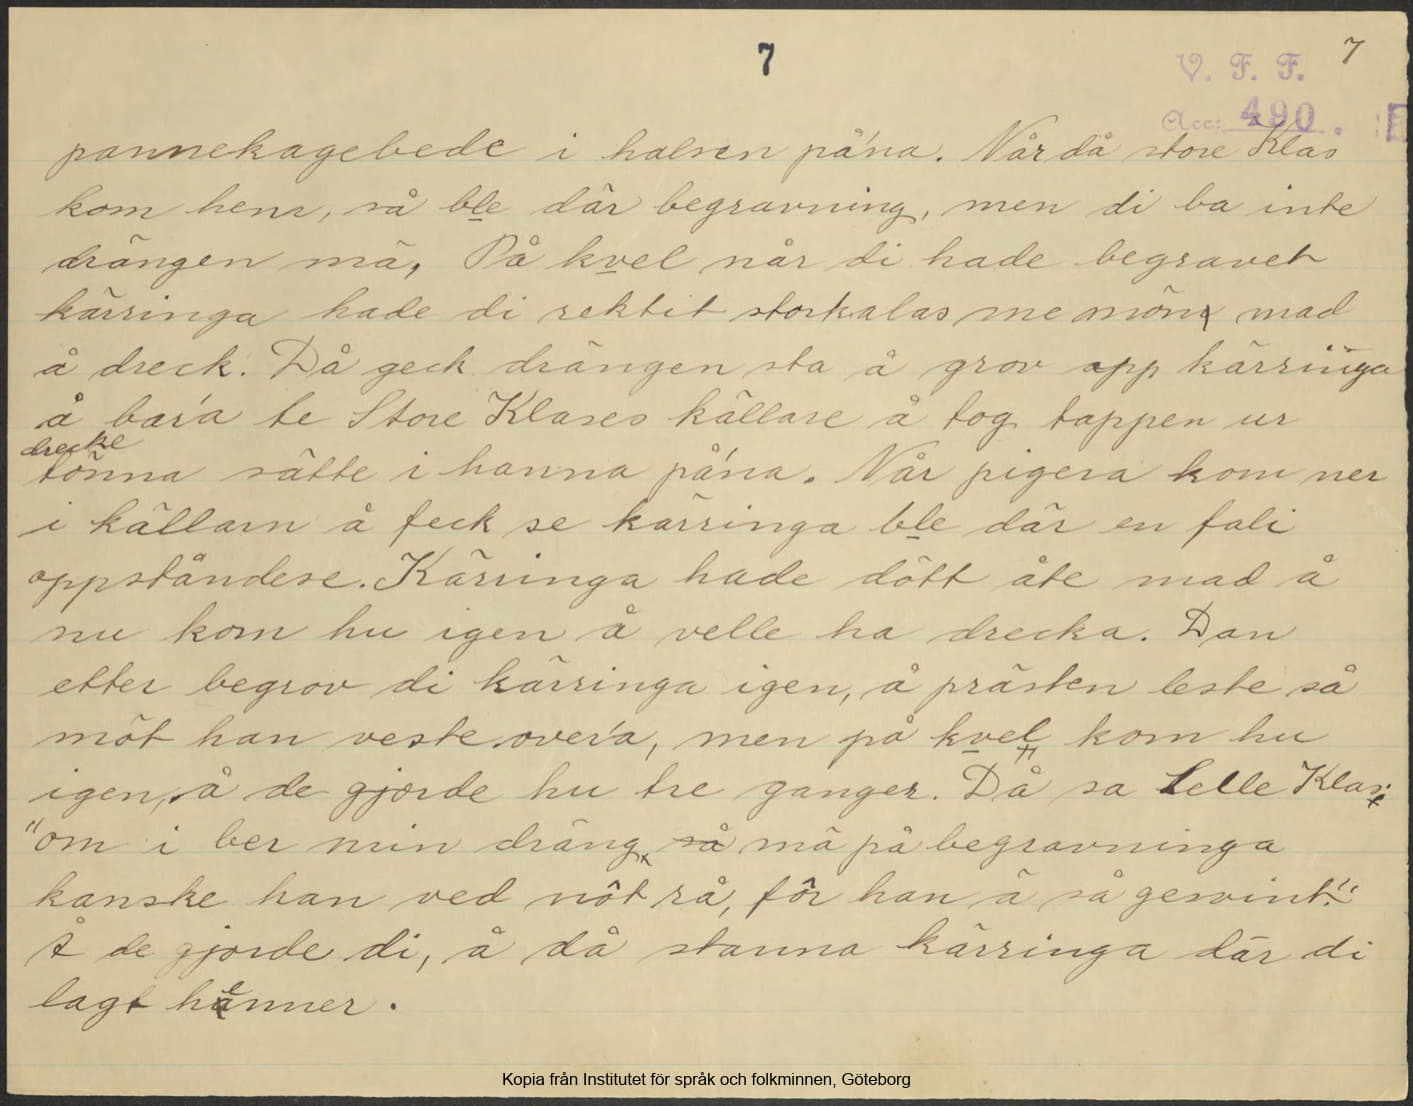 7
7
V. F. F.
Acc: 490.
pannekagebede i halsen på'na. Når då store Klas
kom hem, så ble där begravning, men di ba inte
drängen mä, På kvel når di hade begravet
kärringa hade di rektit storkalas me mön mad
å dreck. Då geck drängen sta å grov opp kärringa
å bar'a te Store Klases källare å tog tappen ur
drecke
tönna sätte i hanna på'na. Når pigera kom ner
i källarn å feck se kärringa ble där en fali
oppståndese. Kärringa hade dött åte mad å
nu kom hu igen å velle ha drecka. Dan
etter begrov di kärringa igen, å prästen leste så
möt han veste over'a, men på kvel kom hu
igen, å de gjorde hu tre ganger. Då sa Lelle Klas:
"om i ber min dräng så mä på begravninga
kanske han ved nöt rå, för han ä så gesvint."
Å de gjorde di, å då stanna kärringa där di
lagt henner.
Kopia från Institutet för språk och folkminnen, Göteborg